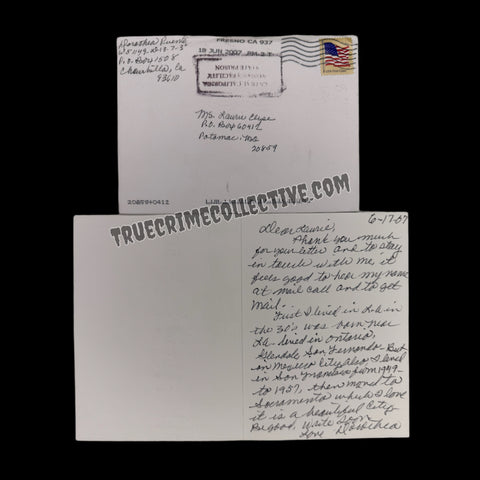 Dorothea Puente
P.O. Box 1508
Chowchilla, Ca
93610
FRESNO CA 937
18 JUN 2007 PM 2 T
CENTRAL CALIFORNIA
WOMEN'S FACILITY
STATE PRISON
Ms. Laurie
P.O. Box 60412
Potomac, Md
20859
20859+0412
TRUECRIMECOLLECTIVE.COM
6-17-07
Dear Laurie,
Thank you much
for your letter and to stay
in touch with me, it
feels good to hear my name
at mail call and to get
mail.
Just I lived in L.A. in
the 30's, was born near
La. lived in Ontario,
Glendale San Fernando. But
on Mexico City also I lived
in San Francisco from 1949
to 1957, then moved to
Sacramento which I love
it is a beautiful City.
Be good, write soon
Love Dorothea